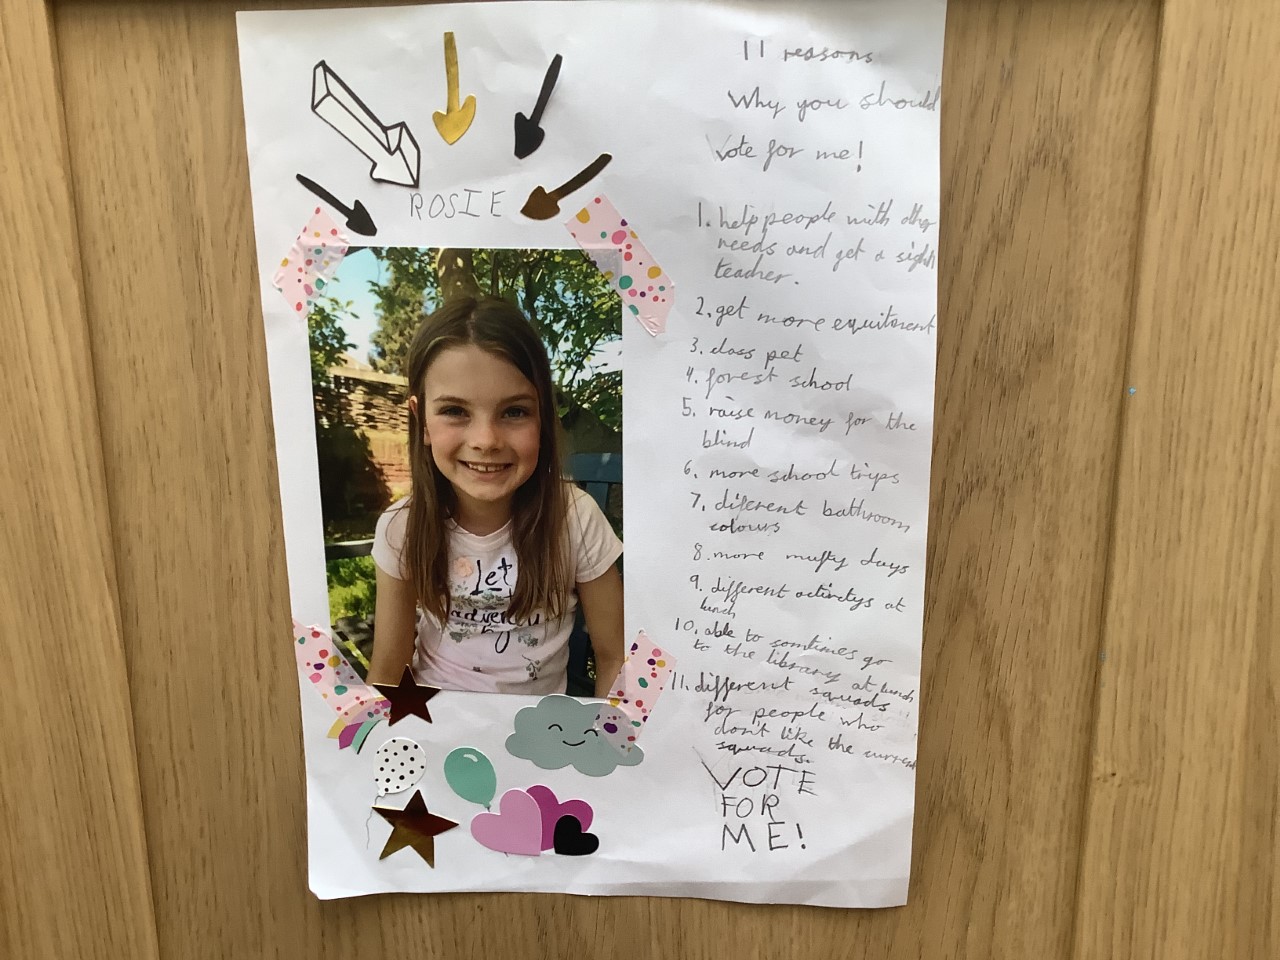 ROSIE
Let
11 reasons
Why you should
Vote for me!
1. help people with other
needs and get a sighn
teacher.
2. get more equitment
3. class pet
4. forest school
5. raise money for the
blind
6. more school trips
7. diferent bathroom
colours
8. more mufty days
9. different activitys at
lunch
10. able to somtimes go
to the library at lunch
11. different squads
for people who
don't like the current
squads.
VOTE
FOR
ME!